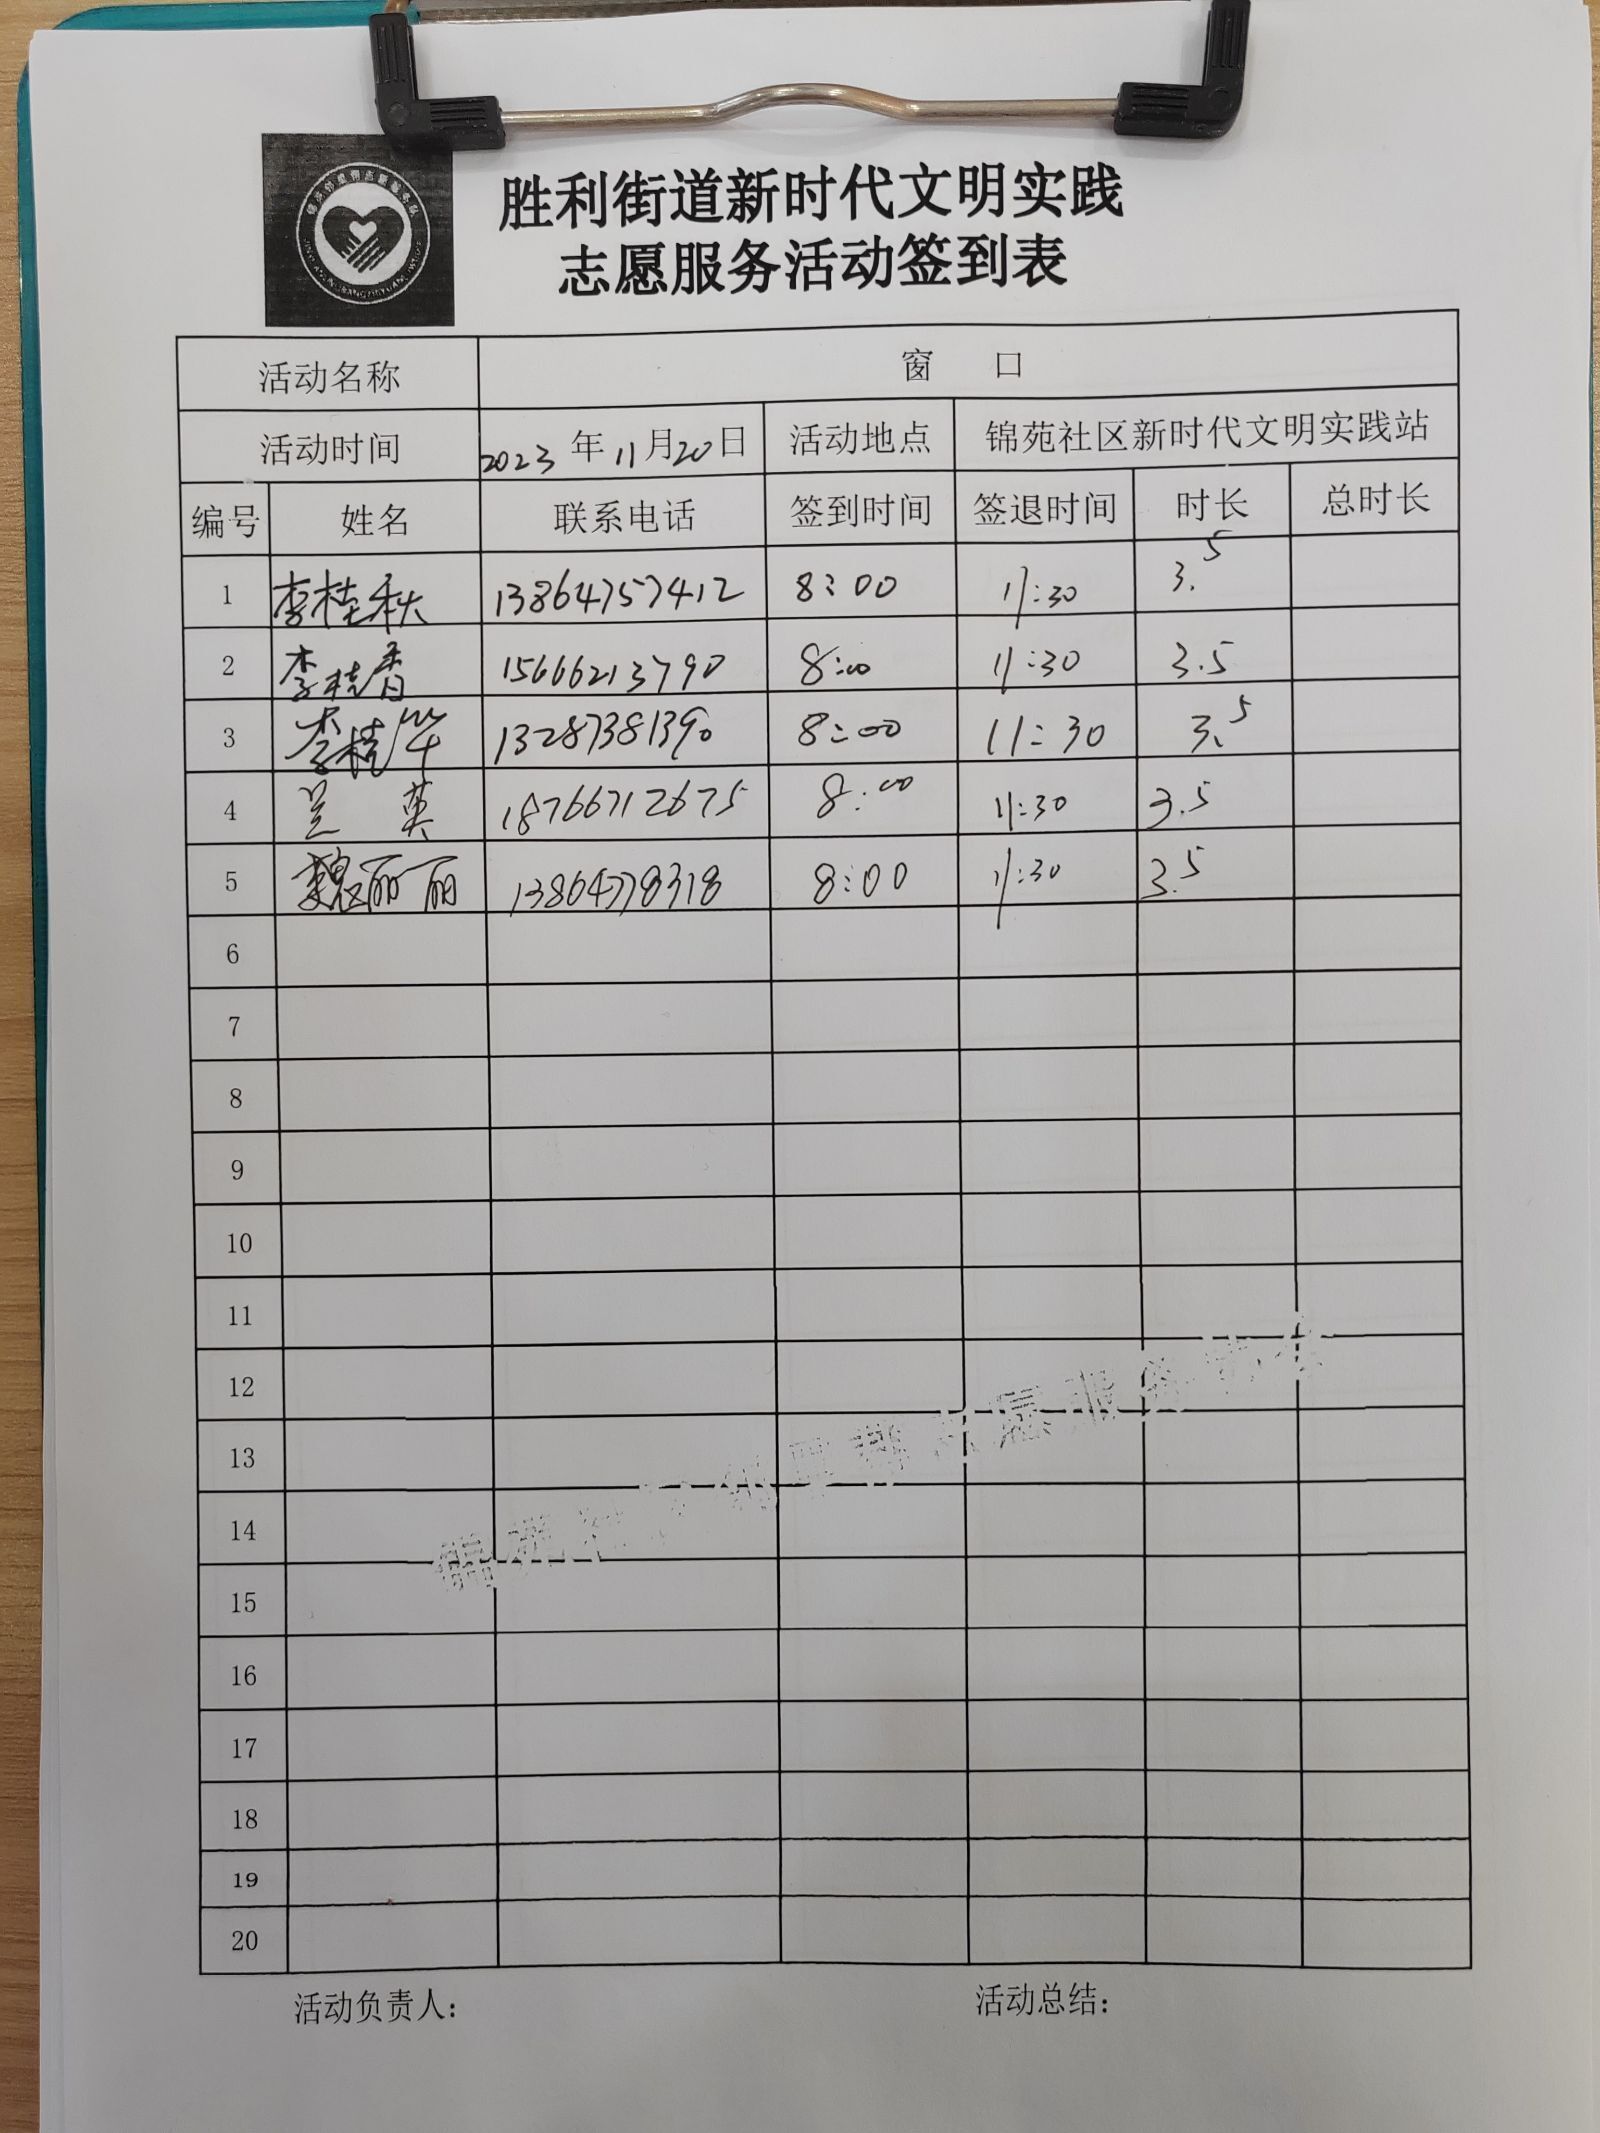 胜利街道新时代文明实践
志愿服务活动签到表
活动名称 窗 口
活动时间 2023 年 11 月 20 日 活动地点 锦苑社区新时代文明实践站
编号 姓名 联系电话 签到时间 签退时间 时长 总时长
1 李桂秋 13864757412 8:00 11:30 3.5
2 李桂香 15666213790 8:00 11:30 3.5
3 李桂华 13287381390 8:00 11:30 3.5
4 兰 英 18766712675 8:00 11:30 3.5
5 魏丽丽 13864778318 8:00 11:30 3.5
6
7
8
9
10
11
12
13
14
15
16
17
18
19
20
活动负责人: 活动总结: